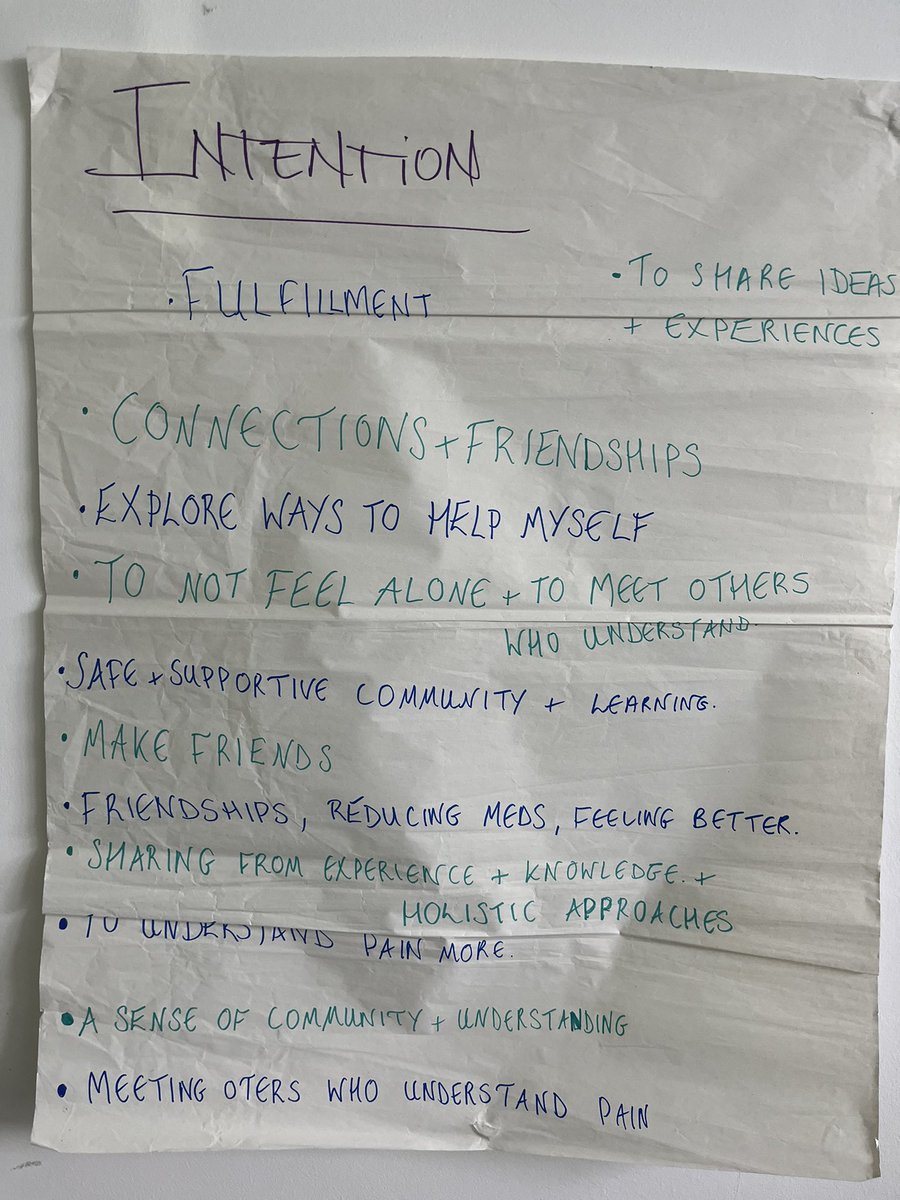 INTENTION
· FULFILLMENT
· TO SHARE IDEAS
+ EXPERIENCES
· CONNECTIONS + FRIENDSHIPS
· EXPLORE WAYS TO HELP MYSELF
· TO NOT FEEL ALONE + TO MEET OTHERS
WHO UNDERSTAND.
· SAFE + SUPPORTIVE COMMUNITY + LEARNING.
· MAKE FRIENDS
· FRIENDSHIPS, REDUCING MEDS, FEELING BETTER.
· SHARING FROM EXPERIENCE + KNOWLEDGE. +
HOLISTIC APPROACHES
· TO UNDERSTAND PAIN MORE.
· A SENSE OF COMMUNITY + UNDERSTANDING
· MEETING OTERS WHO UNDERSTAND PAIN